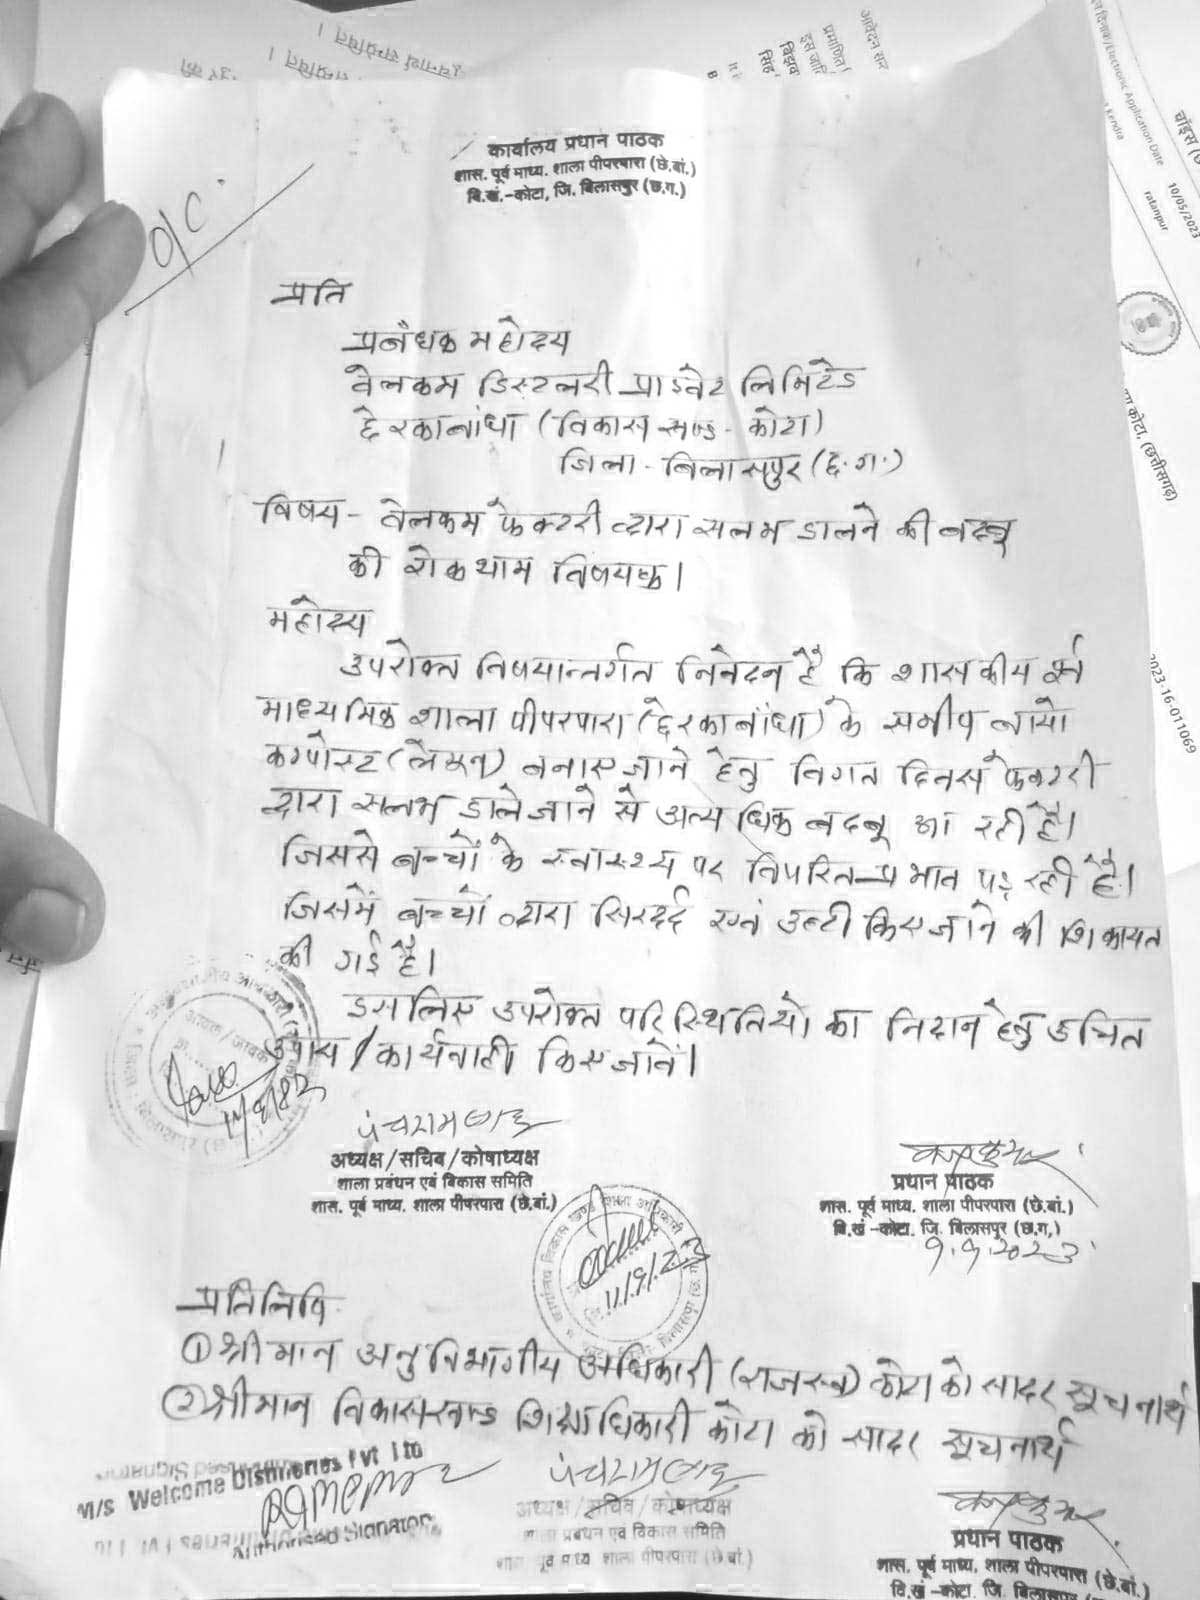 कार्यालय प्रधान पाठक
शास. पूर्व माध्य. शाला पीपरपारा (छे.बां.)
वि.खं.-कोटा, जि. बिलासपुर (छ.ग.)
O/C
प्रति
प्रबंधक महोदय
वेलकम डिस्टलरी प्राइवेट लिमिटेड
छेरकाबांधा (विकास खण्ड - कोटा)
जिला - बिलासपुर (छ.ग.)
विषय - वेलकम फेक्टरी द्वारा सलम डालने की बदबू
की रोकथाम विषयक।
महोदय
उपरोक्त विषयान्तर्गत निवेदन है कि शासकीय पूर्व
माध्यमिक शाला पीपरपारा (छेरकाबांधा) के समीप बायो
कम्पोस्ट (लेगून) बनाए जाने हेतु विगत दिवस फेक्टरी
द्वारा सलम डाले जाने से अत्यधिक बदबू आ रही है।
जिससे बच्चों के स्वास्थ्य पर विपरित प्रभाव पड़ रही है।
जिसमें बच्चों द्वारा सिरदर्द एवं उल्टी किए जाने की शिकायत
की गई है।
इसलिए उपरोक्त परिस्थितियो का निदान हेतु उचित
उपाय / कार्यवाही किए जावें।
पंचराम
अध्यक्ष/सचिव/कोषाध्यक्ष
शाला प्रबंधन एवं विकास समिति
शास. पूर्व माध्य. शाला पीपरपारा (छे.बां.)
प्रधान पाठक
शास. पूर्व माध्य. शाला पीपरपारा (छे.बां.)
वि.खं -कोटा. जि. बिलासपुर (छ.ग.)
9.9.2023
11/9/23
प्रतिलिपि
① श्रीमान अनुविभागीय अधिकारी (राजस्व) कोटा को सादर सूचनार्थ
② श्रीमान विकासखण्ड शिक्षाधिकारी कोटा को सादर सूचनार्थ
M/s Welcome Distilleries Pvt Ltd
Authorised Signatory
पंचराम
अध्यक्ष/सचिव/कोषाध्यक्ष
शाला प्रबंधन एवं विकास समिति
शास. पूर्व माध्य. शाला पीपरपारा (छे.बां.)
प्रधान पाठक
शास. पूर्व माध्य. शाला पीपरपारा (छे.बां.)
वि.खं -कोटा. जि. बिलासपुर
Electronic Application Date
10/05/2023
ratanpur
कोटा, (छत्तीसगढ़)
2023-16-011069